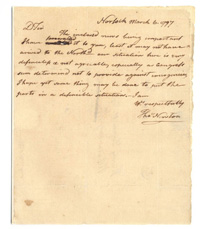 Norfolk March 2. 1797
D Sir
The inclosed news being important
I have to you, lest it may not have
arrived to the North. our situation here is very
defenceless & not agreeable, especially as Congress
seem determined not to provide against
I hope yet some thing may be done to put the
ports in a defensible situation. I am
Yrs respectfully
Tho Newton